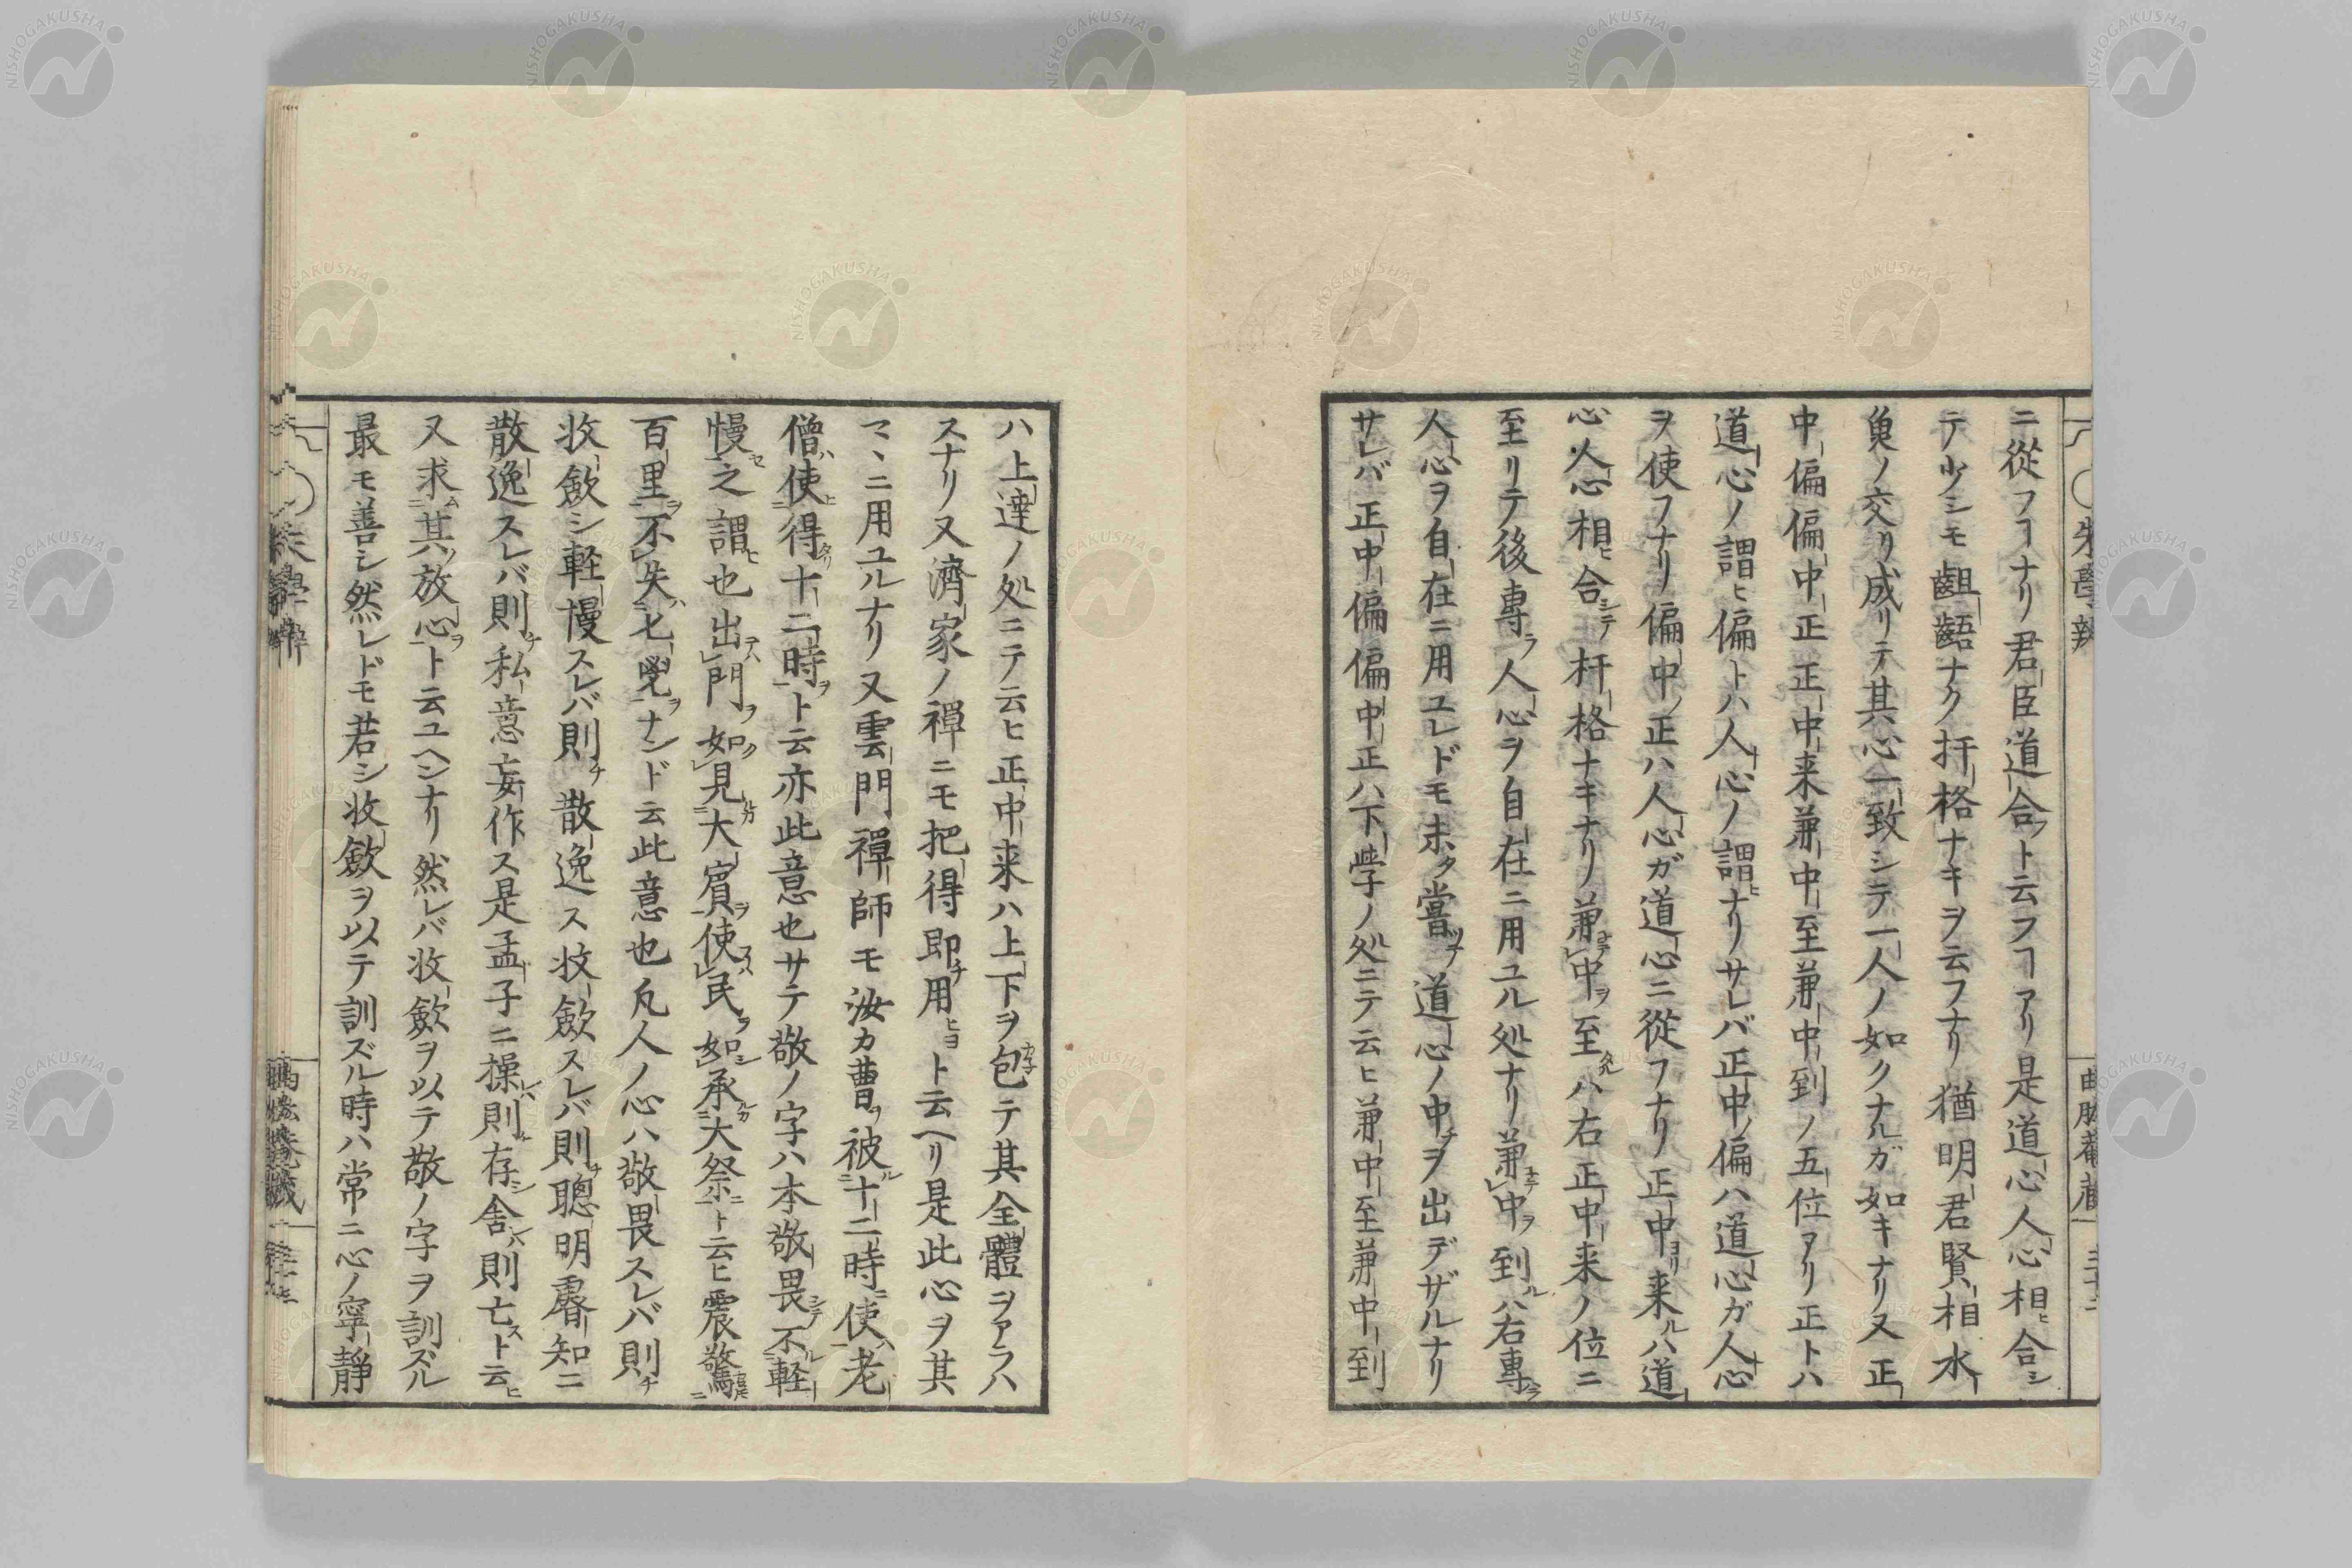 ニ從フヿナリ君臣道合フト云フヿアリ是道心人心相ヒ合シ
テ少シモ齟齬ナク扞格ナキヲ云フナリ猶明君賢相水
魚ノ交リ成リテ其心一致シテ一人ノ如クナルガ如キナリ又正
中偏偏中正正中来兼中至兼中到ノ五位アリ正トハ
道心ノ謂ヒ偏トハ人心ノ謂ヒナリサレバ正中偏ハ道心ガ人心
ヲ使フナリ偏中ノ正ハ人心ガ道心ニ從フナリ正中ヨリ来ルハ道
心人心相ヒ合シテ扞格ナキナリ兼中ヲ至ハ右正中来ノ位ニ
至リテ後專ラ人心ヲ自在ニ用ユル処ナリ兼中ヲ到ルハ右專ラ
人心ヲ自在ニ用ユレドモ未タ嘗テ道心ノ中ヲ出デザルナリ
サレバ正中偏偏中正ハ下学ノ処ニテ云ヒ兼中至兼中到
ハ上達ノ処ニテ云ヒ正中来ハ上下ヲ包テ其全體ヲアラハ
スナリ又濟家ノ禪ニモ把得即チ用ヒヨト云ヘリ是此心ヲ其
マヽニ用ユルナリ又雲門禪師モ汝カ曹ヲ被ル十二時ニ使ハ老
僧ハ使ヒ得タリ十二時ヲト云亦此意也サテ敬ノ字ハ本敬畏シテ不ル軽
慢セ之謂ヒ也出テハ門ヲ如ク見ルカ大賓ヲ使フハ民ヲ如シ承ルカ大祭ニト云ヒ震驚
百里ヲ不失ハ匕鬯ヲナンド云此意也凡人ノ心ハ敬畏スレバ則チ
收斂シ軽慢スレバ則チ散逸ス收斂スレバ則チ聰明睿知ニ
散逸スレバ則チ私意妄作ス是孟子ニ操レバ則存シ舎レバ則亡スト云ヒ
又求ム其ノ放心ヲト云ユヘンナリ然レバ收斂ヲ以テ敬ノ字ヲ訓ズル
最モ善シ然レドモ若シ收斂ヲ以テ訓ズル時ハ常ニ心ノ寧靜
NISHOGAKUSHA